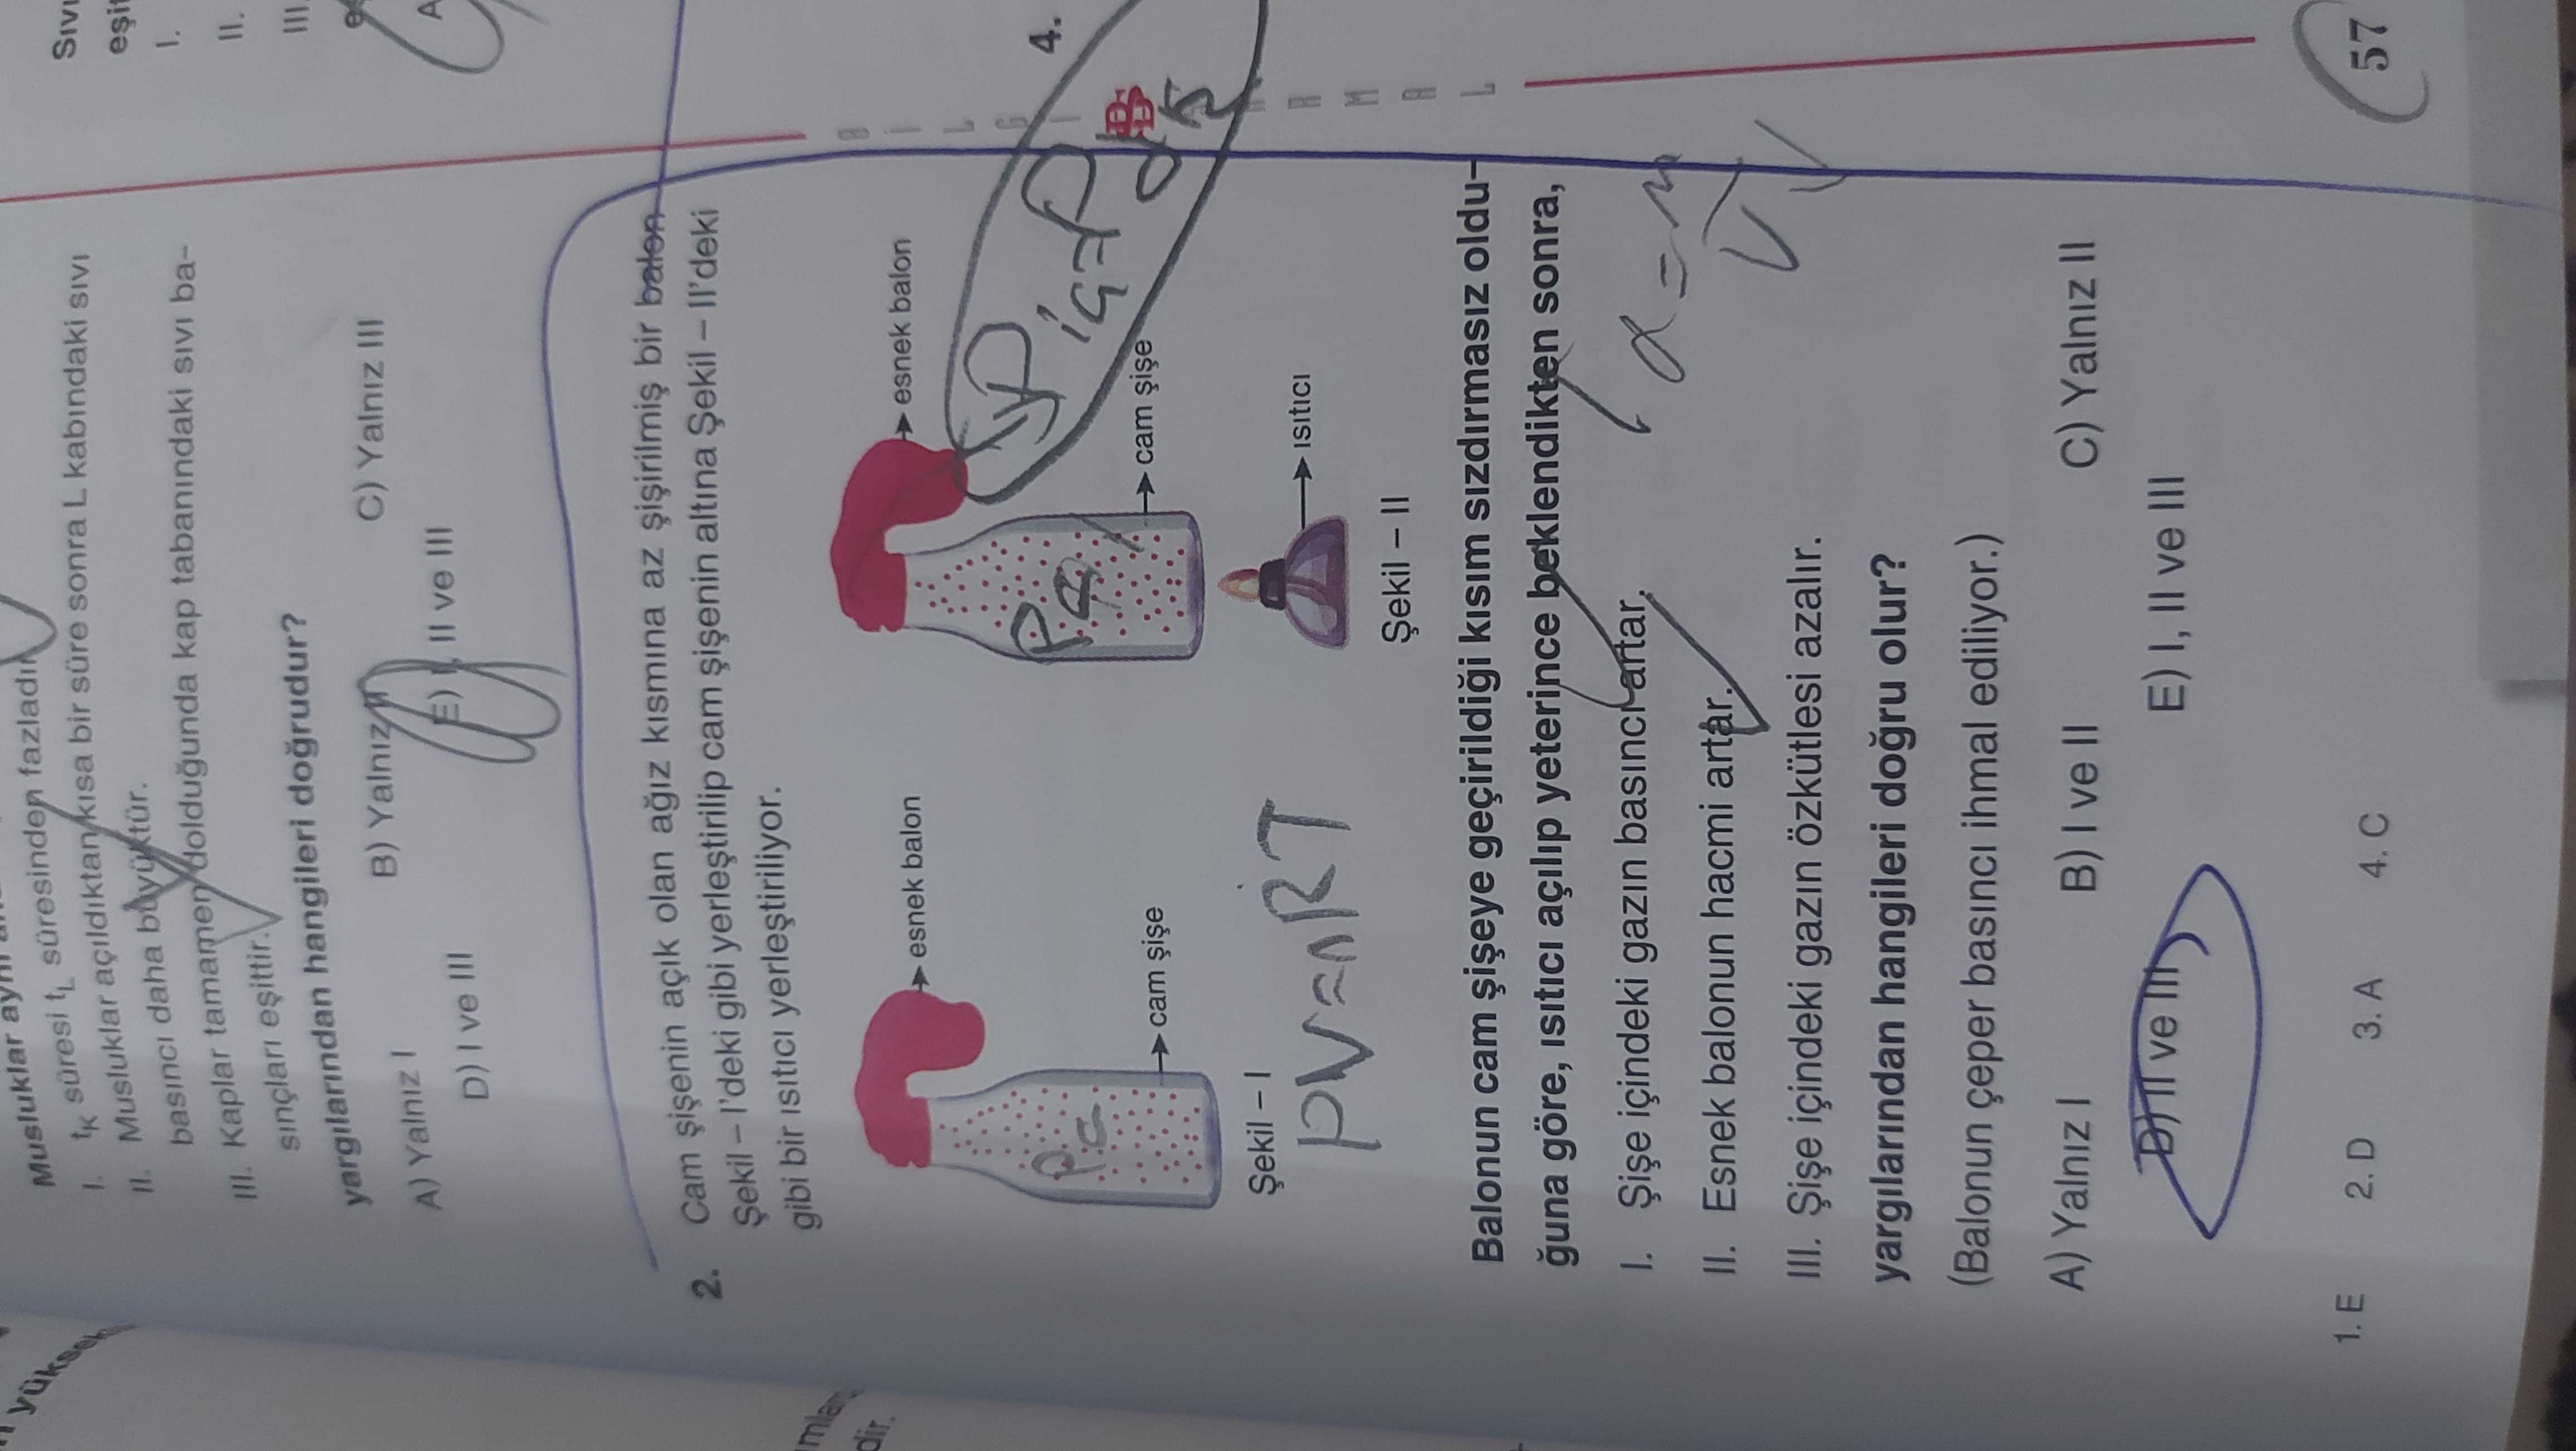 Musluklar aynı
I. tK süresi tL süresinden fazladır.
II. Musluklar açıldıktan kısa bir süre sonra L kabındaki sıvı
basıncı daha büyüktür.
III. Kaplar tamamen dolduğunda kap tabanındaki sıvı ba-
sınçları eşittir.
yargılarından hangileri doğrudur?
A) Yalnız I
B) Yalnız II
C) Yalnız III
D) I ve III
E) I, II ve III
2. Cam şişenin açık olan ağız kısmına az şişirilmiş bir balon
Şekil – I'deki gibi yerleştirilip cam şişenin altına Şekil – II'deki
gibi bir ısıtıcı yerleştiriliyor.
esnek balon
cam şişe
PG
Şekil – I
esnek balon
cam şişe
ısıtıcı
PG
Şekil – II
PV=nRT
Piç=Pdış
Balonun cam şişeye geçirildiği kısım sızdırmasız oldu-
ğuna göre, ısıtıcı açılıp yeterince beklendikten sonra,
I. Şişe içindeki gazın basıncı artar.
II. Esnek balonun hacmi artar.
III. Şişe içindeki gazın özkütlesi azalır.
yargılarından hangileri doğru olur?
(Balonun çeper basıncı ihmal ediliyor.)
A) Yalnız I
B) I ve II
C) Yalnız II
D) II ve III
E) I, II ve III
1. E 2. D 3. A 4. C
Sıvı
eşit
I.
II.
III.
A
4.
57
yüksek
dir.